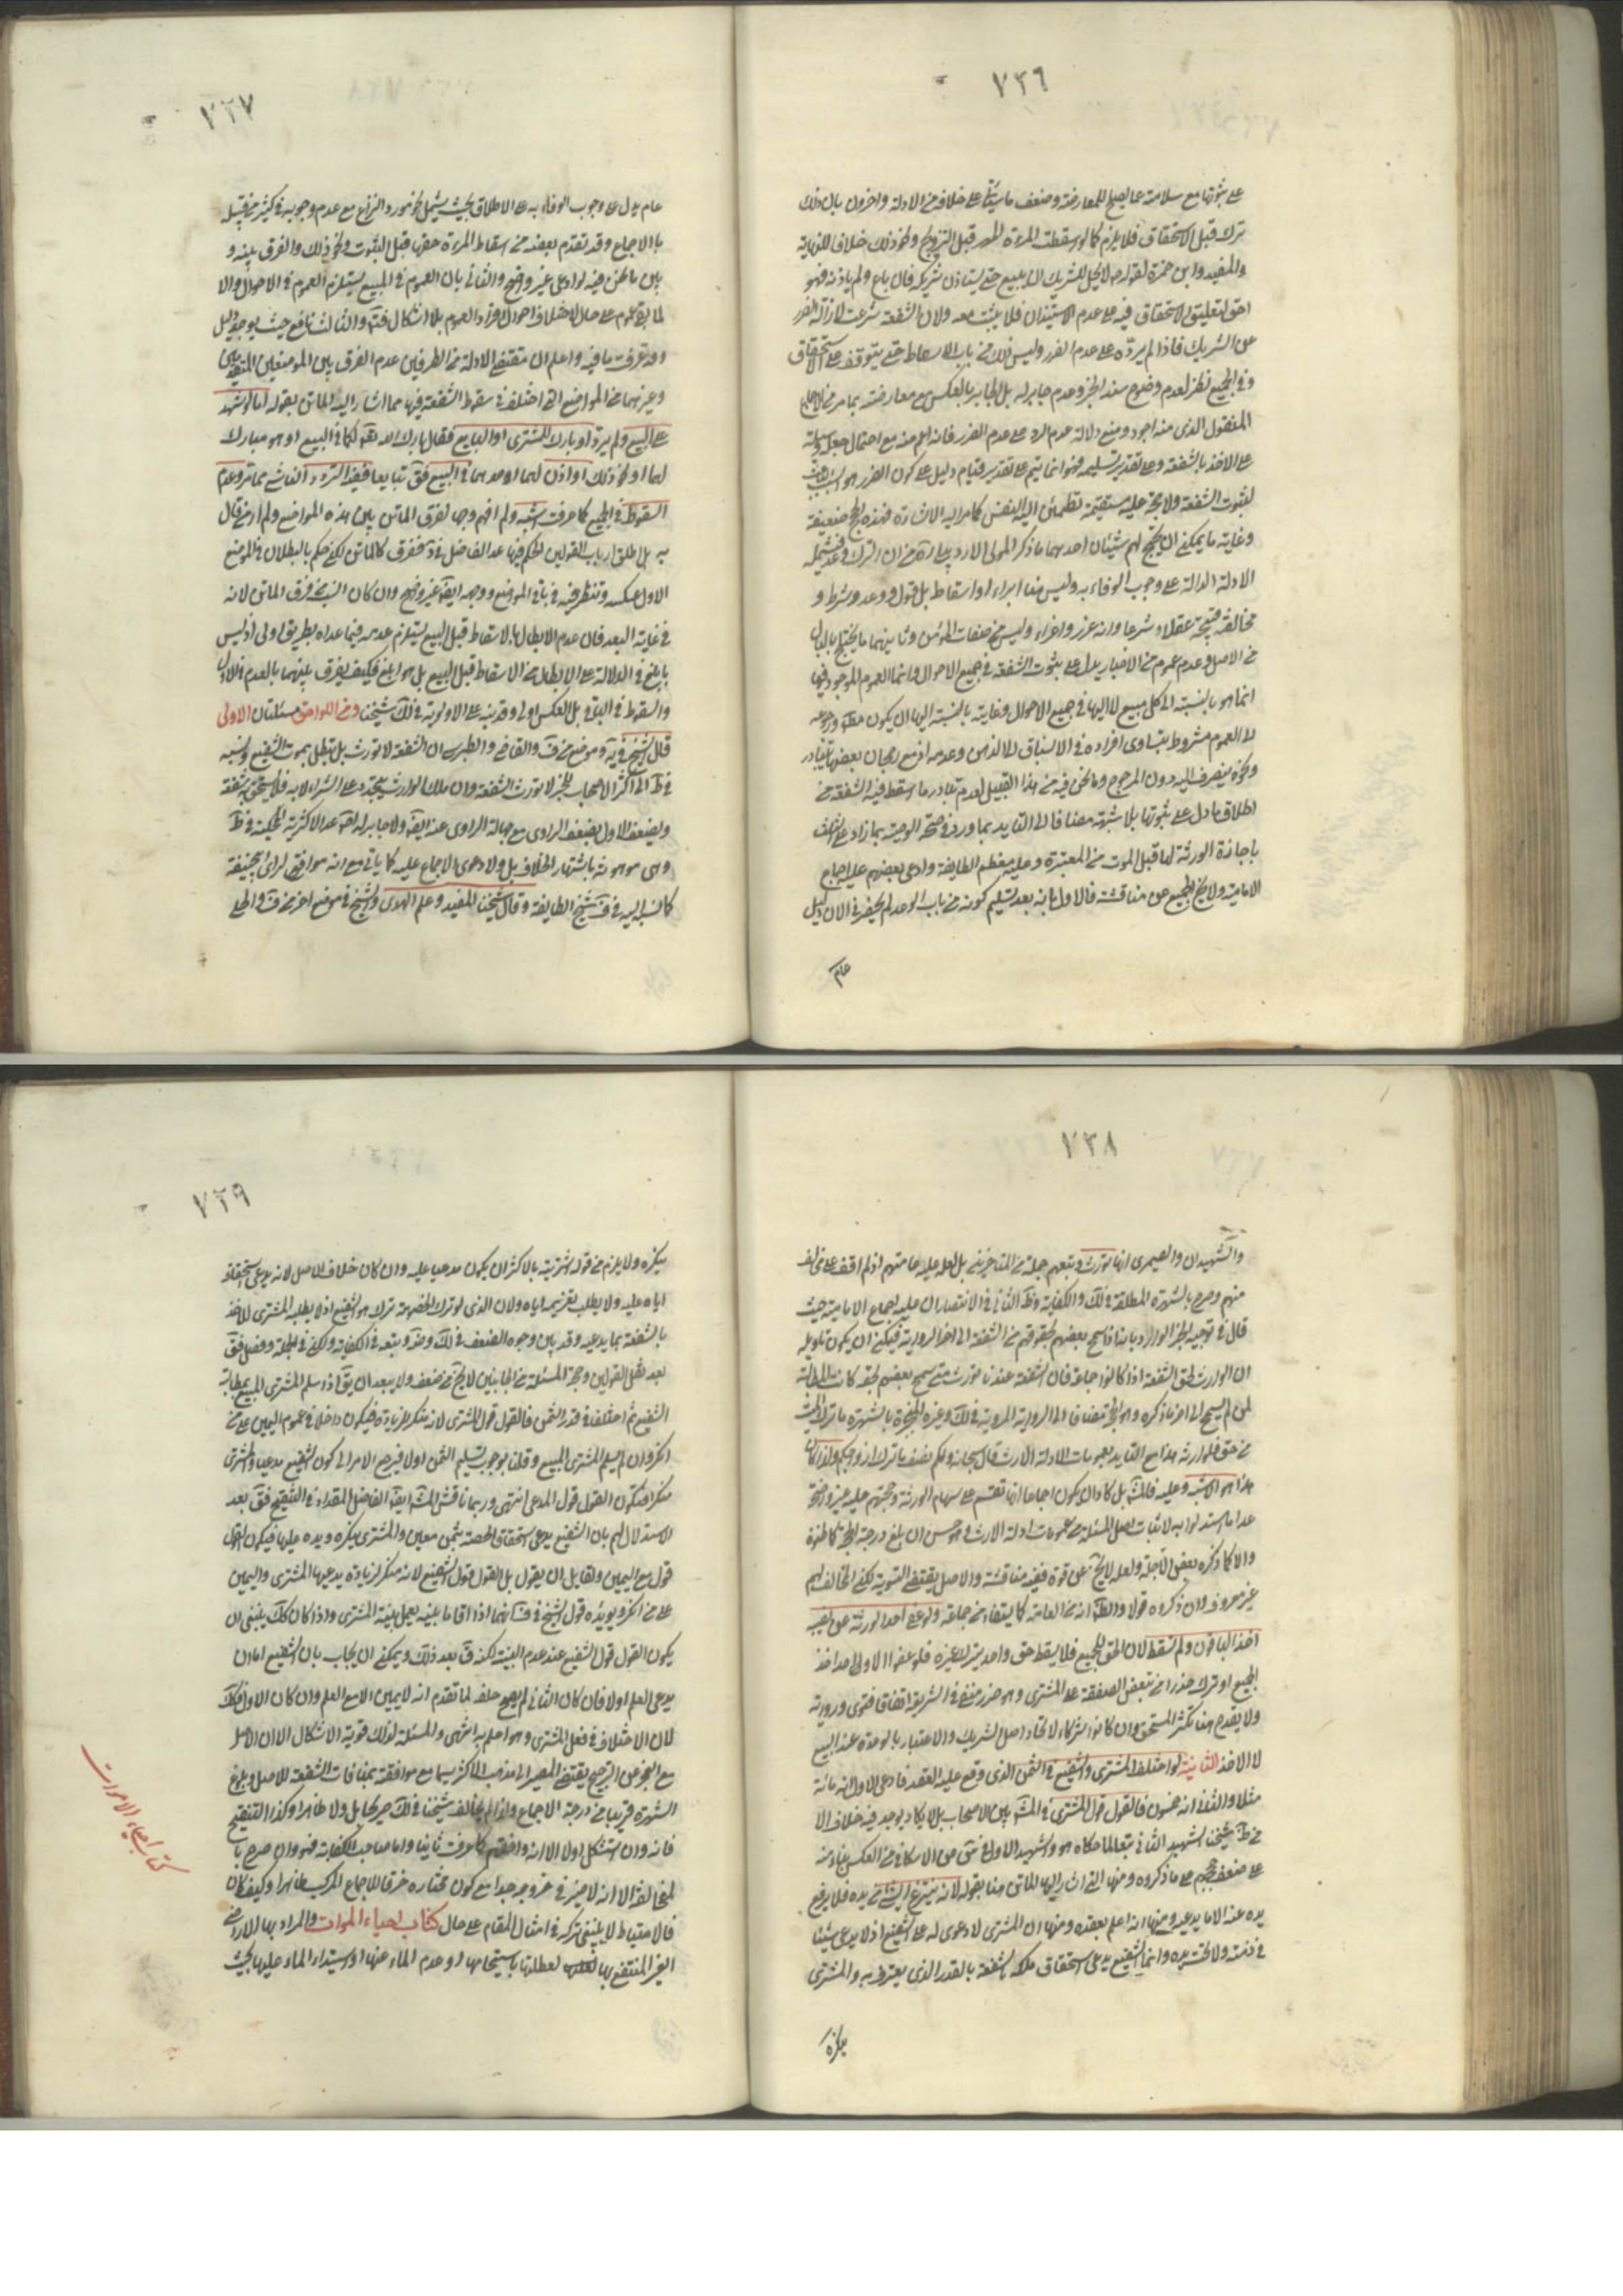 ٧٣٦
على ثبوتها مع سلامته عما يصلح للمعارضة وضعف ما سيأتي على خلافه من الادلة واخرون بان ذلك
ترك قبل الاستحقاق فلا يلزم كما لو اسقطت المرءة المهر قبل التزويج ونحو ذلك خلافا للنهاية
والمفيد وابن حمزة لقوله لا يحل للشريك ان يبيع حتى يستاذن شريكه فان باع ولم ياذنه فهو
احق به لتعليق الاستحقاق فيه على عدم الاستيذان فلا يثبت معه ولان الشفعة شرعت لازالة الضرر
عن الشريك فاذا لم يرده على عدم الضرر وليس ذلك من باب الاسقاط حتى يتوقف على الاستحقاق
وفي الجميع نظر لعدم وضوح سند الخبر وعدم جابر له بل الجابر بالعكس مع معارضته بما مر من الاجماع
المنقول الذي منه اجود ومنع دلالة عدم الرد على عدم الضرر فانه اعم منه مع احتمال جعله وسيلة
على الاخذ بالشفعة وعلى تقدير تسليمه فهو انما يتم على تقدير قيام دليل على كون الضرر هو السبب
لثبوت الشفعة ولا حجة عليه مستقيمة تطمئن اليه النفس كما مر اليه الاشارة فهذه الحجج ضعيفة
وغاية ما يمكن ان يحتج لهم شيئان احدهما ما ذكر المولى الاردبيلي ره من ان الترك وعد فيشمله
الادلة الدالة على وجوب الوفاء به وليس هنا ابراء او اسقاط بل قول ووعد وشرط و
مخالفته قبيحة عقلا وشرعا وانه غرر واغراء وليس من صفات المؤمن وثانيهما ما يختلج بالبال
من الاصل وعدم عموم من الاخبار يدل على ثبوت الشفعة في جميع الاحوال وانما العموم الموجود فيها
انما هو بالنسبة الى كل مبيع لا اليها في جميع الاحوال وغايته بالنسبة اليها ان يكون مطلقا ورجوعه
الى العموم مشروط بتساوي افراده في الانسباق الى الذهن وعدمه اذ مع رجحان بعضها بتبادر
ونحوه ينصرف اليه دون المرجوح وما نحن فيه من هذا القبيل لعدم تبادر ما سقط فيه الشفعة من
اطلاق ما دل على ثبوتها بلا شبهة مضافا الى التاييد بما ورد في صحة الوصية بما زاد على الثلث
باجازة الورثة لها قبل الموت من المعتبرة وعليه معظم الطايفة وادعى بعضهم عليه اجماع
الامامية ولا يخ الجميع عن مناقشة فالاول بانه بعد تسليم كونه من باب الوعد لم يحضرني الان دليل
عام
٧٣٧
عام يدل على وجوب الوفاء به على الاطلاق بحيث يشمل نحو مورد النزاع مع عدم وجوبه في كثير من قبيله
بالاجماع وقد تقدم بعضه من اسقاط المرءة حقها قبل الثبوت ونحو ذلك والفرق بينه و
بين ما نحن فيه لو ادعى غير واضح والثاني بان العموم في المبيع يستلزم العموم في الاحوال والا
لما بقي عموم على حاله لاختلاف احوال افراد العموم بلا اشكال فتم والثالث نافع حيث يوجد دليل
وقد عرفت ما فيه واعلم ان مقتضى الادلة من الطرفين عدم الفرق بين الموضعين المتقدمين
وغيرهما من المواضع التي اختلف في سقوط الشفعة فيها مما اشار اليه الماتن بقوله اما لو شهد
على البيع ولم يرد او بارك للمشتري او البايع فقال بارك الله لكما في البيع او هو مبارك
لهما او نحو ذلك او اذن لهما او احدهما في البيع فق تبايعا ففيه التردد الناشي مما مر وعدم
السقوط في الجميع كما عرفت اشبه ولم افهم وجها لفرق الماتن بين هذه المواضع ولم ار من قال
به بل اطلق ارباب القولين الحكم فيها عدا الفاضل في د ففرق كالماتن لكن حكم بالبطلان في الموضع
الاول عكسه وتنظر فيه في باقي المواضع ووجهه ايضا غير واضح وان كان انسب من فرق الماتن لانه
في غاية البعد فان عدم الابطال بالاسقاط قبل البيع يستلزم عدمه فيما عداه بطريق اولى اذ ليس
بابلغ في الدلالة على الابطال من الاسقاط قبل البيع بل هو ابلغ فكيف يفرق بينهما بالعدم في الاول
والسقوط في البواقي بل العكس اولى وقد نبه على الاولوية في لك شيخنا ومن اللواحق مسئلتان الاولى
قال الشيخ في يه وموضع من ف والقاضي والطبرسي ان الشفعة لا تورث بل تبطل بموت الشفيع ونسبه
في ط الى اكثر الاصحاب للخبر لا تورث الشفعة وان ملك الوارث يتجدد على الشراء لا به فلا يستحق به شفعة
ويضعف الاول بضعف الراوي مع جهالة الراوي عنه ايضا ولا جابر له عدا الاكثرية المحكية في ط
وهي موهونة باشتهار الخلاف بل ولا دعوى الاجماع عليه كما ياتي مع انه موافق لراى ابي حنيفة
كما نسبه اليه في ف شيخ الطايفة وقال شيخنا المفيد وعلم الهدى والشيخ في موضع اخر من ف والحلي
٧٣٨
والشهيدان والصيمري انها تورث وتبعهم جملة من المتاخرين بل لعله عليه عامتهم اذ لم اقف على مخالف
منهم وصرح بالشهرة المطلقة في لك والكفاية وط الثاني في الانتصار ان عليه اجماع الامامية حيث
قال في توجيه الخبر الوارد بانها اذا سمح بعضهم بحقوقهم من الشفعة الى اخر الرواية فيمكن ان يكون تاويله
ان الوارث لحق الشفعة اذا كانوا جماعة فان الشفعة عندنا تورث متى سمح بعضهم بحقه كانت المطالبة
لمن لم يسمح الى اخر ما ذكره وهو الحجة مضافا الى الرواية المروية في لك وغيره المنجبرة بالشهرة ما ترك الميت
من حق فلوارثه هذا مع التاييد بعمومات الادلة الارث قال سبحانه ولكم نصف ما ترك ازواجكم ولذا كان
هذا هو الاشبه وعليه فالمشهور بل كاد ان يكون اجماعا انها تقسم على سهام الورثة وحجتهم عليه غير واضحة
عدا ما استدلوا به لاثبات اصل المسئلة من عمومات ادلة الارث وهو حسن ان بلغ درجة الحجة كما ظنوه
والا كما ذكره بعض الاجلة ولعله لا يخ عن قوة ففيه مناقشة والاصل يقتضي التسوية لكن المخالف لهم
غير معروف وان ذكروه قولا والظاهر انه من العامة كما يستفاد من جماعة ولو عفى احد الورثة عن نصيبه
اخذ الباقون ولم تسقط لان الحق للجميع فلا يسقط حق واحد بترك غيره فلو عفوا الا واحدا اخذ
الجميع او ترك حذرا من تبعض الصفقة على المشتري وهو ضرر منفي في الشريعة اتفاقا فتوى ورواية
ولا يقدح هنا تكثر المستحق وان كانوا شركاء لاتحاد اصل الشريك والاعتبار بالوحدة عند البيع
لا الاخذ الثانية لو اختلف المشتري والشفيع في الثمن الذي وقع عليه العقد فادعى الاول انه مائة
مثلا والثاني انه خمسون فالقول قول المشتري في المشهور بين الاصحاب بل لا يكاد يوجد فيه خلاف الا
من ظ شيخنا الشهيد الثاني تبعا لما حكاه هو والشهيد الاول في ح عن الاسكافي من العكس بناء منه
على ضعف حججهم على ما ذكروه ومنها التي اشار اليها الماتن هنا بقوله لانه ينتزع الشئ من يده فلا يرفع
يده عنه الا بما يدعيه ومنها انه اعلم بعقده ومنها ان المشتري لا دعوى له على الشفيع اذ لا يدعي شيئا
في ذمته ولا تحت يده وانما الشفيع يدعي استحقاق ملكه بالشفعة بالقدر الذي يعترف به والمشتري
ينكره
٧٣٩
ينكره ولا يلزم من قوله اشتريته بالاكثر ان يكون مدعيا عليه وان كان خلاف الاصل لانه يدعي استحقاقه
اياه عليه ولا يطلب تغريمه اياه ولان الذي لو ترك الخصومة ترك هو الشفيع اذ لا يطلبه المشتري للاخذ
بالشفعة بما يدعيه وقد بين وجوه الضعف في لك وضه وتبعه في الكفاية ولكن في الجملة وفصل فق
بعد نقل القولين وحجة المسئلة من الجانبين لا يخ من ضعف ولا يبعد ان يق اذا سلم المشتري المبيع بمطالبة
الشفيع ثم اختلفا في قدر الثمن فالقول قول المشتري لانه منكر للزيادة فيكون داخلا في عموم اليمين على من
انكر وان لم يسلم المشتري المبيع وقلنا بوجوب تسليم الثمن اولا فيرجع الامر الى كون الشفيع مدعيا والمشتري
منكرا فيكون القول قول المدعى انتهى وربما ناقش المشهور ايضا الفاضل المقداد في التنقيح فق بعد
الاستدلال لهم بان الشفيع يدعي استحقاق الحصة بثمن معين والمشتري ينكره ويده عليها فيكون القول
قوله مع اليمين ولقايل ان يقول بل القول قول الشفيع لانه منكر لزيادة يدعيها المشتري واليمين
على من انكر ويؤيده قول الشيخ في ف انهما اذا اقاما بينة يعمل ببينة المشتري واذا كان كك ينبغي ان
يكون القول قول الشفيع عند عدم البينة لكنه ق بعد ذلك ويمكن ان يجاب بان الشفيع اما ان
يدعي العلم اولا فان كان الثاني لم يصح حلفه لما تقدم انه لا يمين الا مع العلم وان كان الاول فكك
لان الاختلاف في فعل المشتري وهو اعلم به انتهى والمسئلة لذلك قوية الاشكال الا ان الاصل
مع العجز عن الترجيح يقتضي المصير الى مذهب الاكثر سيما مع موافقته بمنافات الشفعة للاصل وبلوغ
الشهرة قريبا من درجة الاجماع ولذا لم يخالفه شيخنا في لك صريحا بل ولا ظاهرا وكذا التنقيح
فانه وان استشكل اولا الا انه وافقهم كما عرف ثانيا واما صاحب الكفاية فهو وان صرح با
لمخالفة الا انه لا ضير في خروجه جدا مع كون مختاره خرقا للاجماع المركب ظاهرا وكيف كان
فالاحتياط لا ينبغي تركه في امثال المقام على حال كتاب احياء الموات والمراد بها الاراضي
الغير المنتفع بها لعطلتها باستيجامها او عدم الماء عنها او استيلاء الماء عليها بحيث
كتاب احياء الاموات